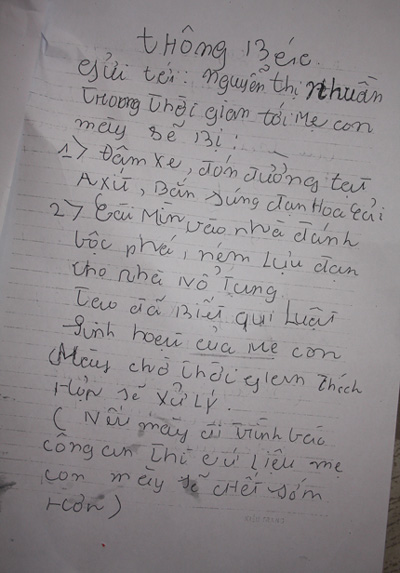 THÔNG BÉC.
Gửi tới: Nguyễn Thị Nhuần
Thong thời gian tới Mẹ con
mày sẽ Bị:
1> Đâm xe, đón đường tạt
Axít, Bắn súng đạn Hoa Cải
2> Gài Mìn vào nhà đánh
bộc phá, ném Lựu đạn
cho nhà nổ Tung
Tao đã Biết qui Luật
sinh hoạt của Mẹ con
Mày chờ Thời gian Thích
Hợp sẽ xử Lý.
(Nếu mày đi trình báo
công an thì cứ liệu mẹ
con mày sẽ chết sớm
Hơn)